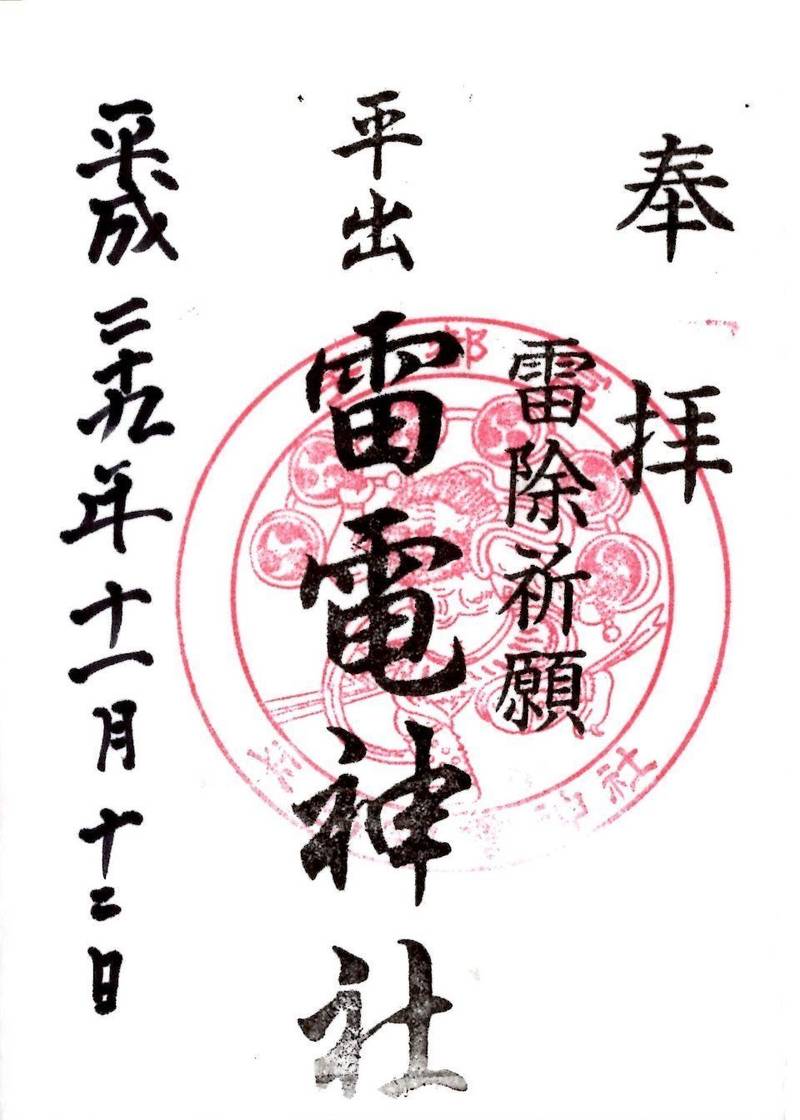 奉拝
雷除祈願
平出
雷電神社
平成二十九年十一月十二日